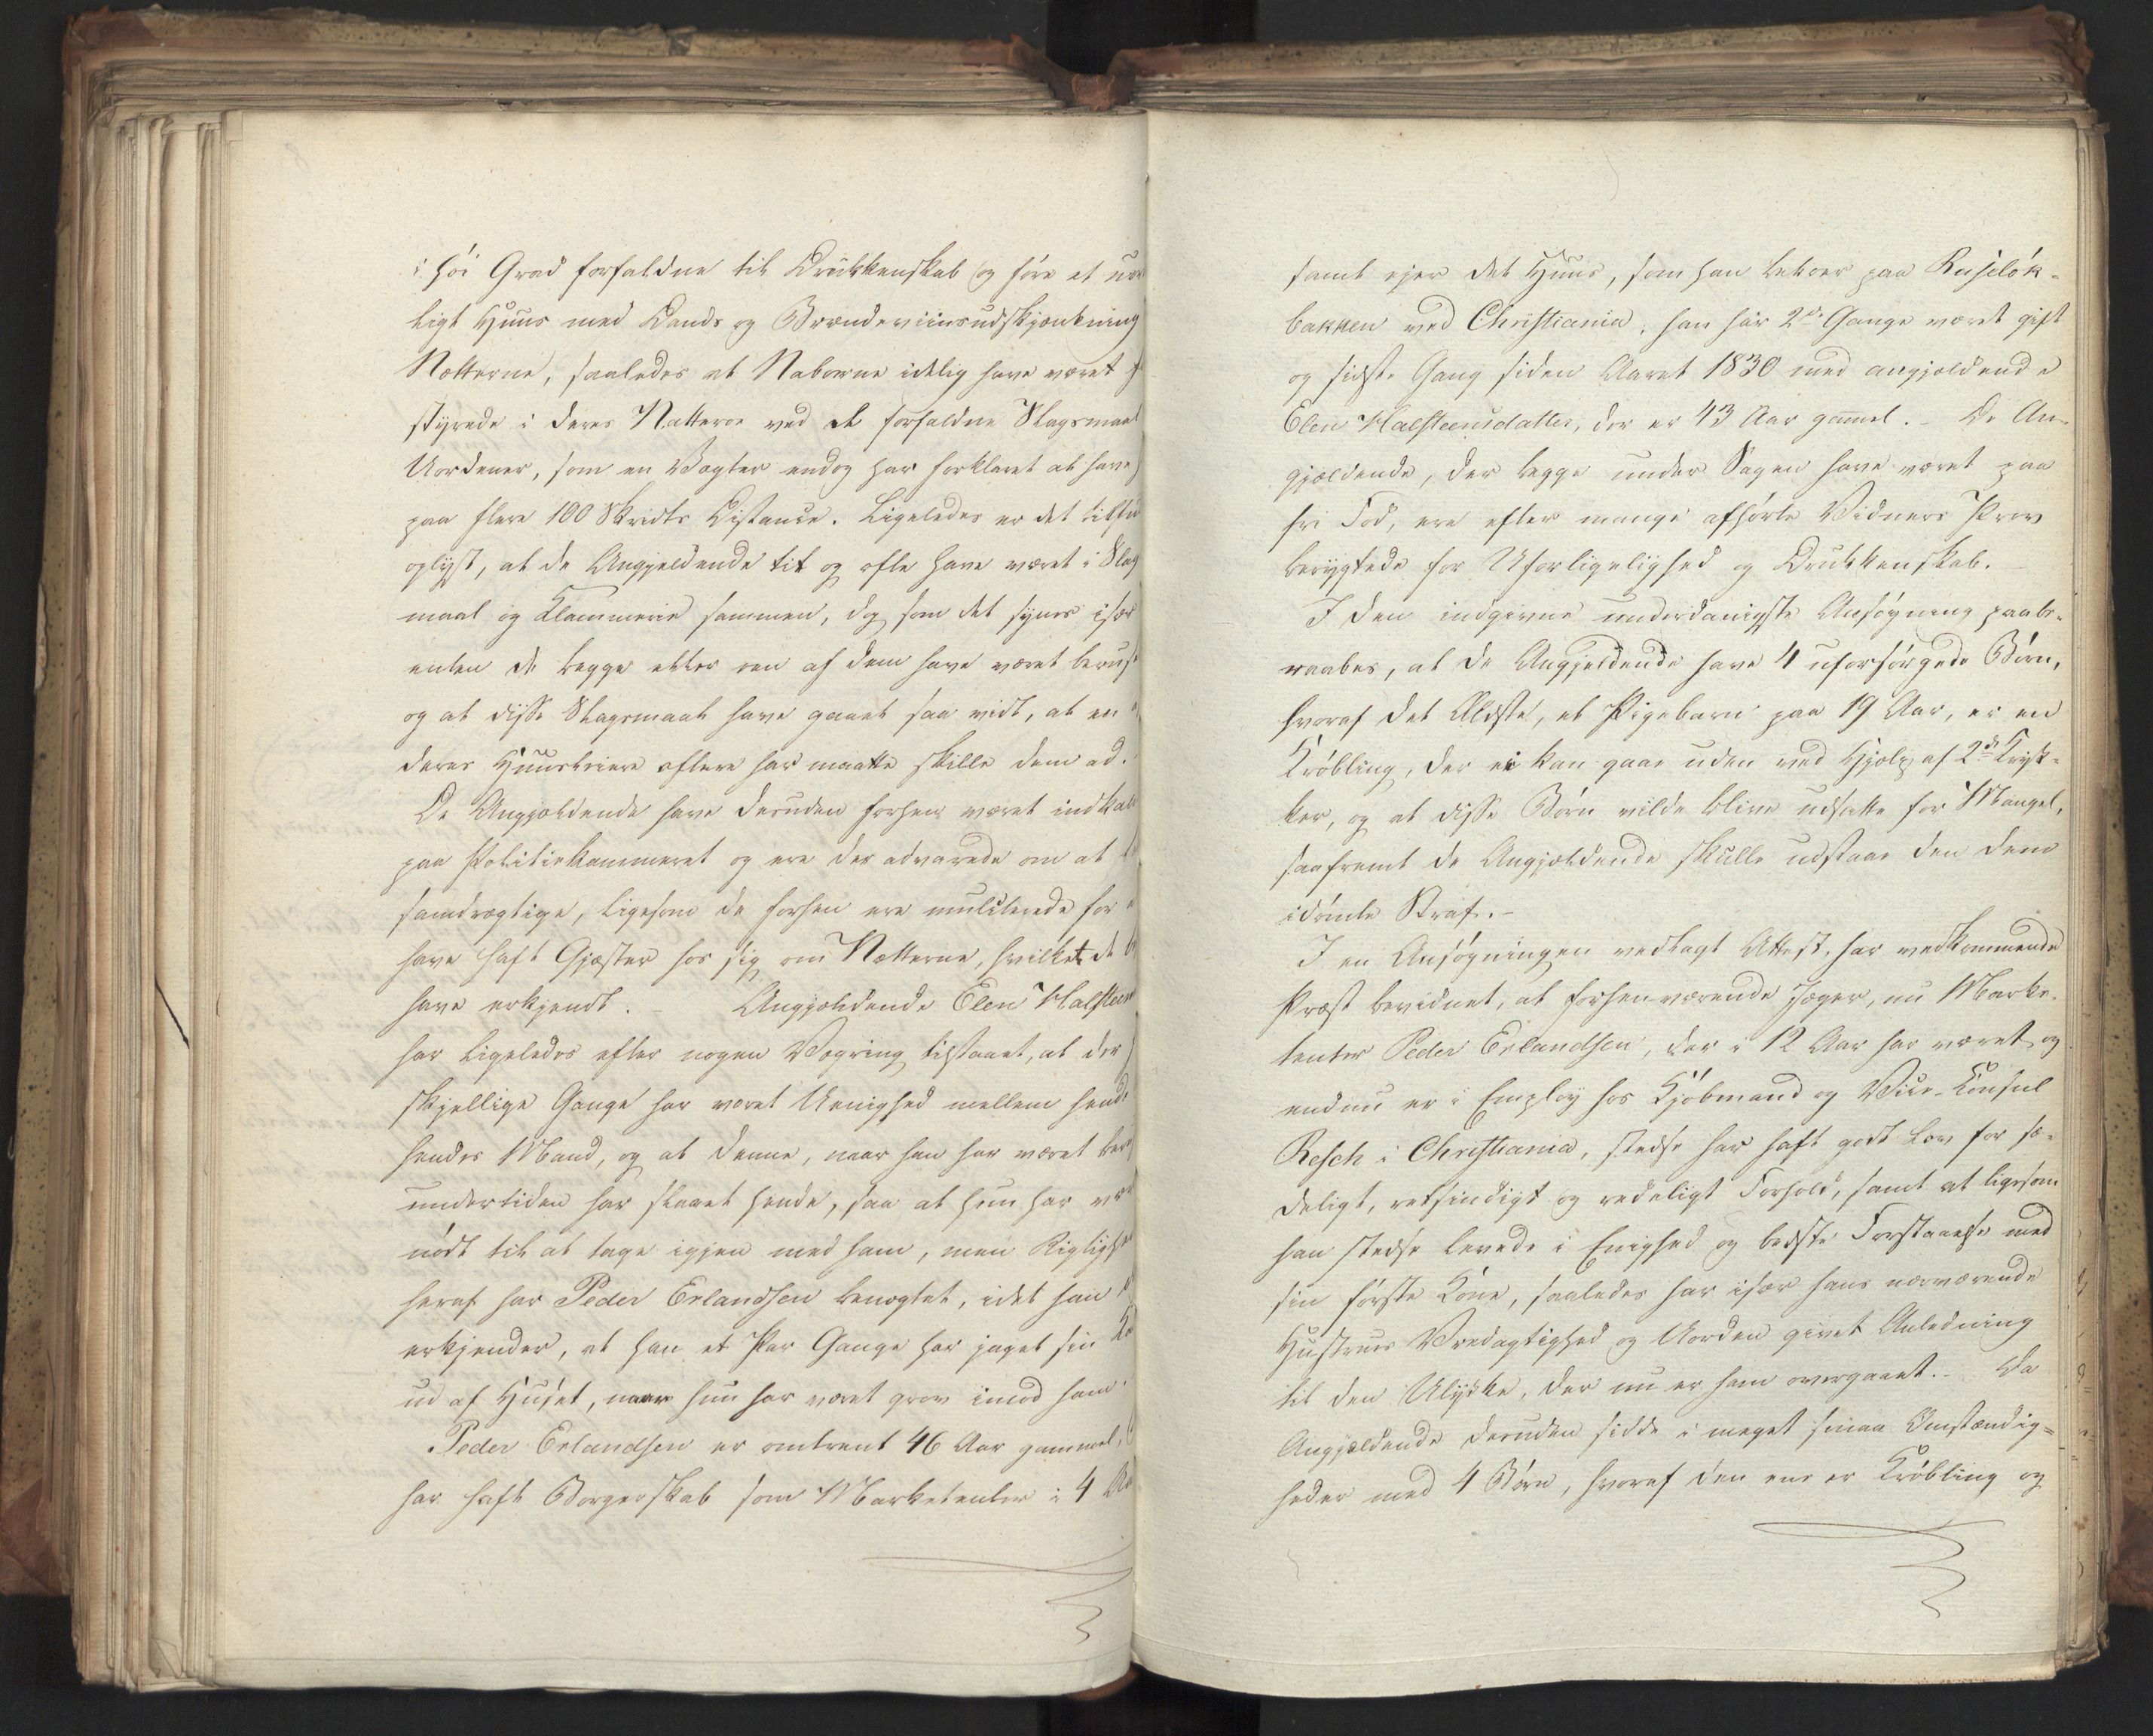 i høi Grad forfaldne til Drukkenskab og føre et uor
ligt Huus med Dands og Brændeviinsudskjænkning
Nætterne, saaledes at Naboerne idelig have været
styrede i deres Natteroe ved de forfaldne Slagsmaal
Uordener, som en Vægter endog har forklaret at have
paa flere 100 Skridts Distance. Ligeledes er det
oplyst, at de Angjeldende tit og ofte have været i Slag
maal og Klammerie sammen, dog som det synes især
enten de begge eller een af dem have været beruse
og at disse Slagsmaal have gaaet saa vidt, at en
deres Huusleiere oftere har maatte skille dem ad.
De Angjældende have desuden forhen været indkald
paa Politiekammeret og ere der advarede om at
samdrægtige, ligesom de forhen ere mulcterede for
have haft Gjæster hos sig om Nætterne, hvilket de
have erkjendt. – Angjældende Elen Halsteen
har ligeledes efter nogen Vægring tilstaaet, at der
skjellige Gange har været Uenighed mellem hende
hendes Mand, og at denne, naar han har været ber
undertiden har slaaet hende, saa at hun har væ
nødt til at tage igjen med ham, men Rigtighe
heraf har Peder Erlandsen benægtet, idet han
erkjender, at han et Par Gange har jaget sin Ko
ud af Huset, naar hun har været grov imod ham.
Peder Erlandsen er omtrent 46 Aar gammel,
har haft Borgerskab som Marketenter i 4
samt ejer det Huus, som han beboer paa Ruseløk-
bakken ved Christiania, han har 2de Gange været gift
og sidste Gang siden Aaret 1830 med angjældende
Elen Halsteensdatter, der er 43 Aar gammel. – De An-
gjældende, der begge under Sagen have været paa
fri Fod, ere efter mange afhørte Vidners Prov
berygtede for Uforligelighed og Drukkenskab.
I den indgivne underdanigste Ansøgning paabe-
raabes, at de Angjeldende have 4 uforsørgede Børn,
hvoraf det Ældste, et Pigebarn paa 19 Aar, er en
Krøbling, der ei kan gaae uden ved Hjælp af 2de Kryk-
ker, og at disse Børn vilde blive udsatte for Mangel,
saafremt de Angjældende skulle udstaae den dem
idømte Straf. –
I en Ansøgningen vedlagt Attest, har vedkommende
Præst bevidnet, at forhenværende Jæger, nu Marke-
tenter Peder Erlandsen, der i 12 Aar har været og
endnu er i Employ hos Kjøbmand og Vice-Consul
Resch i Christiania, stedse har haft godt Lov for sæ-
deligt, retsindigt og redeligt Forhold, samt at ligesom
han stedse levede i Enighed og bedste Forstaaelse med
sin første Kone, saaledes har især hans nærværende
Hustrues Vredagtighed og Uorden givet Anledning
til den Ulykke, der nu er ham overgaaet. – Da
Angjældende desuden sidde i meget smaa Omstændig-
heder med 4 Børn, hvoraf den ene er Krøbling og